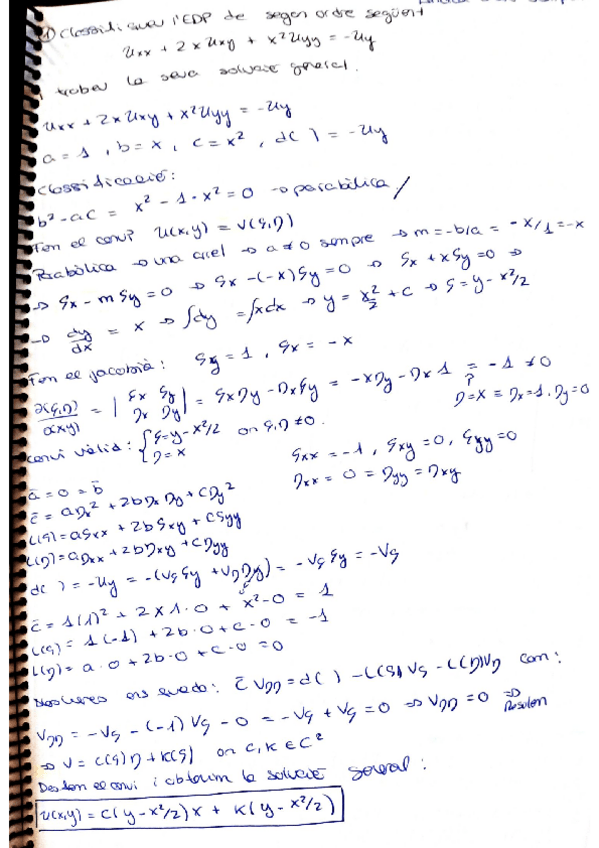 ① Classifiqueu l'EDP de segon ordre següent
Uxx + 2xUxy + x²Uyy = -Uy
i trobeu la seva solució general.
Uxx + 2xUxy + x²Uyy = -Uy
a = 1, b = x, c = x², d( ) = -Uy
Classificació:
b² - ac = x² - 1·x² = 0 → parabòlica /
Fem el canvi? U(x,y) = V(ξ,η)
Parabòlica → una arrel → a ≠ 0 sempre → m = -b/a = -x/1 = -x
→ ξx - mξy = 0 → ξx - (-x)ξy = 0 → ξx + xξy = 0 ⇒
→ dy/dx = x → ∫dy = ∫xdx → y = x²/2 + c → ξ = y - x²/2
Fem el jacobià: ξy = 1, ξx = -x
∂(ξ,η)/∂(x,y) = |ξx ξy ηx ηy| = ξxηy - ηxξy = -xηy - ηx1 = -1 ≠ 0
? η = x ⇒ ηx = 1, ηy = 0
Canvi vàlid: { ξ = y - x²/2 η = x on ξ,η ≠ 0.
ξxx = -1, ξxy = 0, ξyy = 0
ηxx = 0 = ηyy = ηxy
ā = 0 = b̄
c̄ = aηx² + 2bηxηy + cηy²
L(ξ) = aξxx + 2bξxy + cξyy
L(η) = aηxx + 2bηxy + cηyy
d( ) = -Uy = -(Vξξy + Vηηy) = -Vξξy = -Vξ
c̄ = 1(1)² + 2x1·0 + x²·0 = 1
L(ξ) = 1(-1) + 2b·0 + c·0 = -1
L(η) = a·0 + 2b·0 + c·0 = 0
ens queda: c̄Vηη = d( ) - L(ξ)Vξ - L(η)Vη com:
Vηη = -Vξ - (-1)Vξ - 0 = -Vξ + Vξ = 0 ⇒ Vηη = 0 ⇒ Resolem
⇒ V = C(ξ)η + K(ξ) on C,K ∈ C²
Desfem el canvi i obtenim la solució general:
U(x,y) = C(y - x²/2)x + K(y - x²/2)